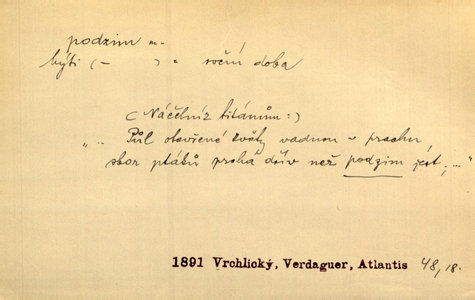 podzim m.
býti (— ) = roční doba
(Náčelník titánům:)
".. Půl otevřené květy vadnou v prachu,
sbor ptáků prchá dřív než podzim jest,..."
1891 Vrchlický, Verdaguer, Atlantis 48,18.